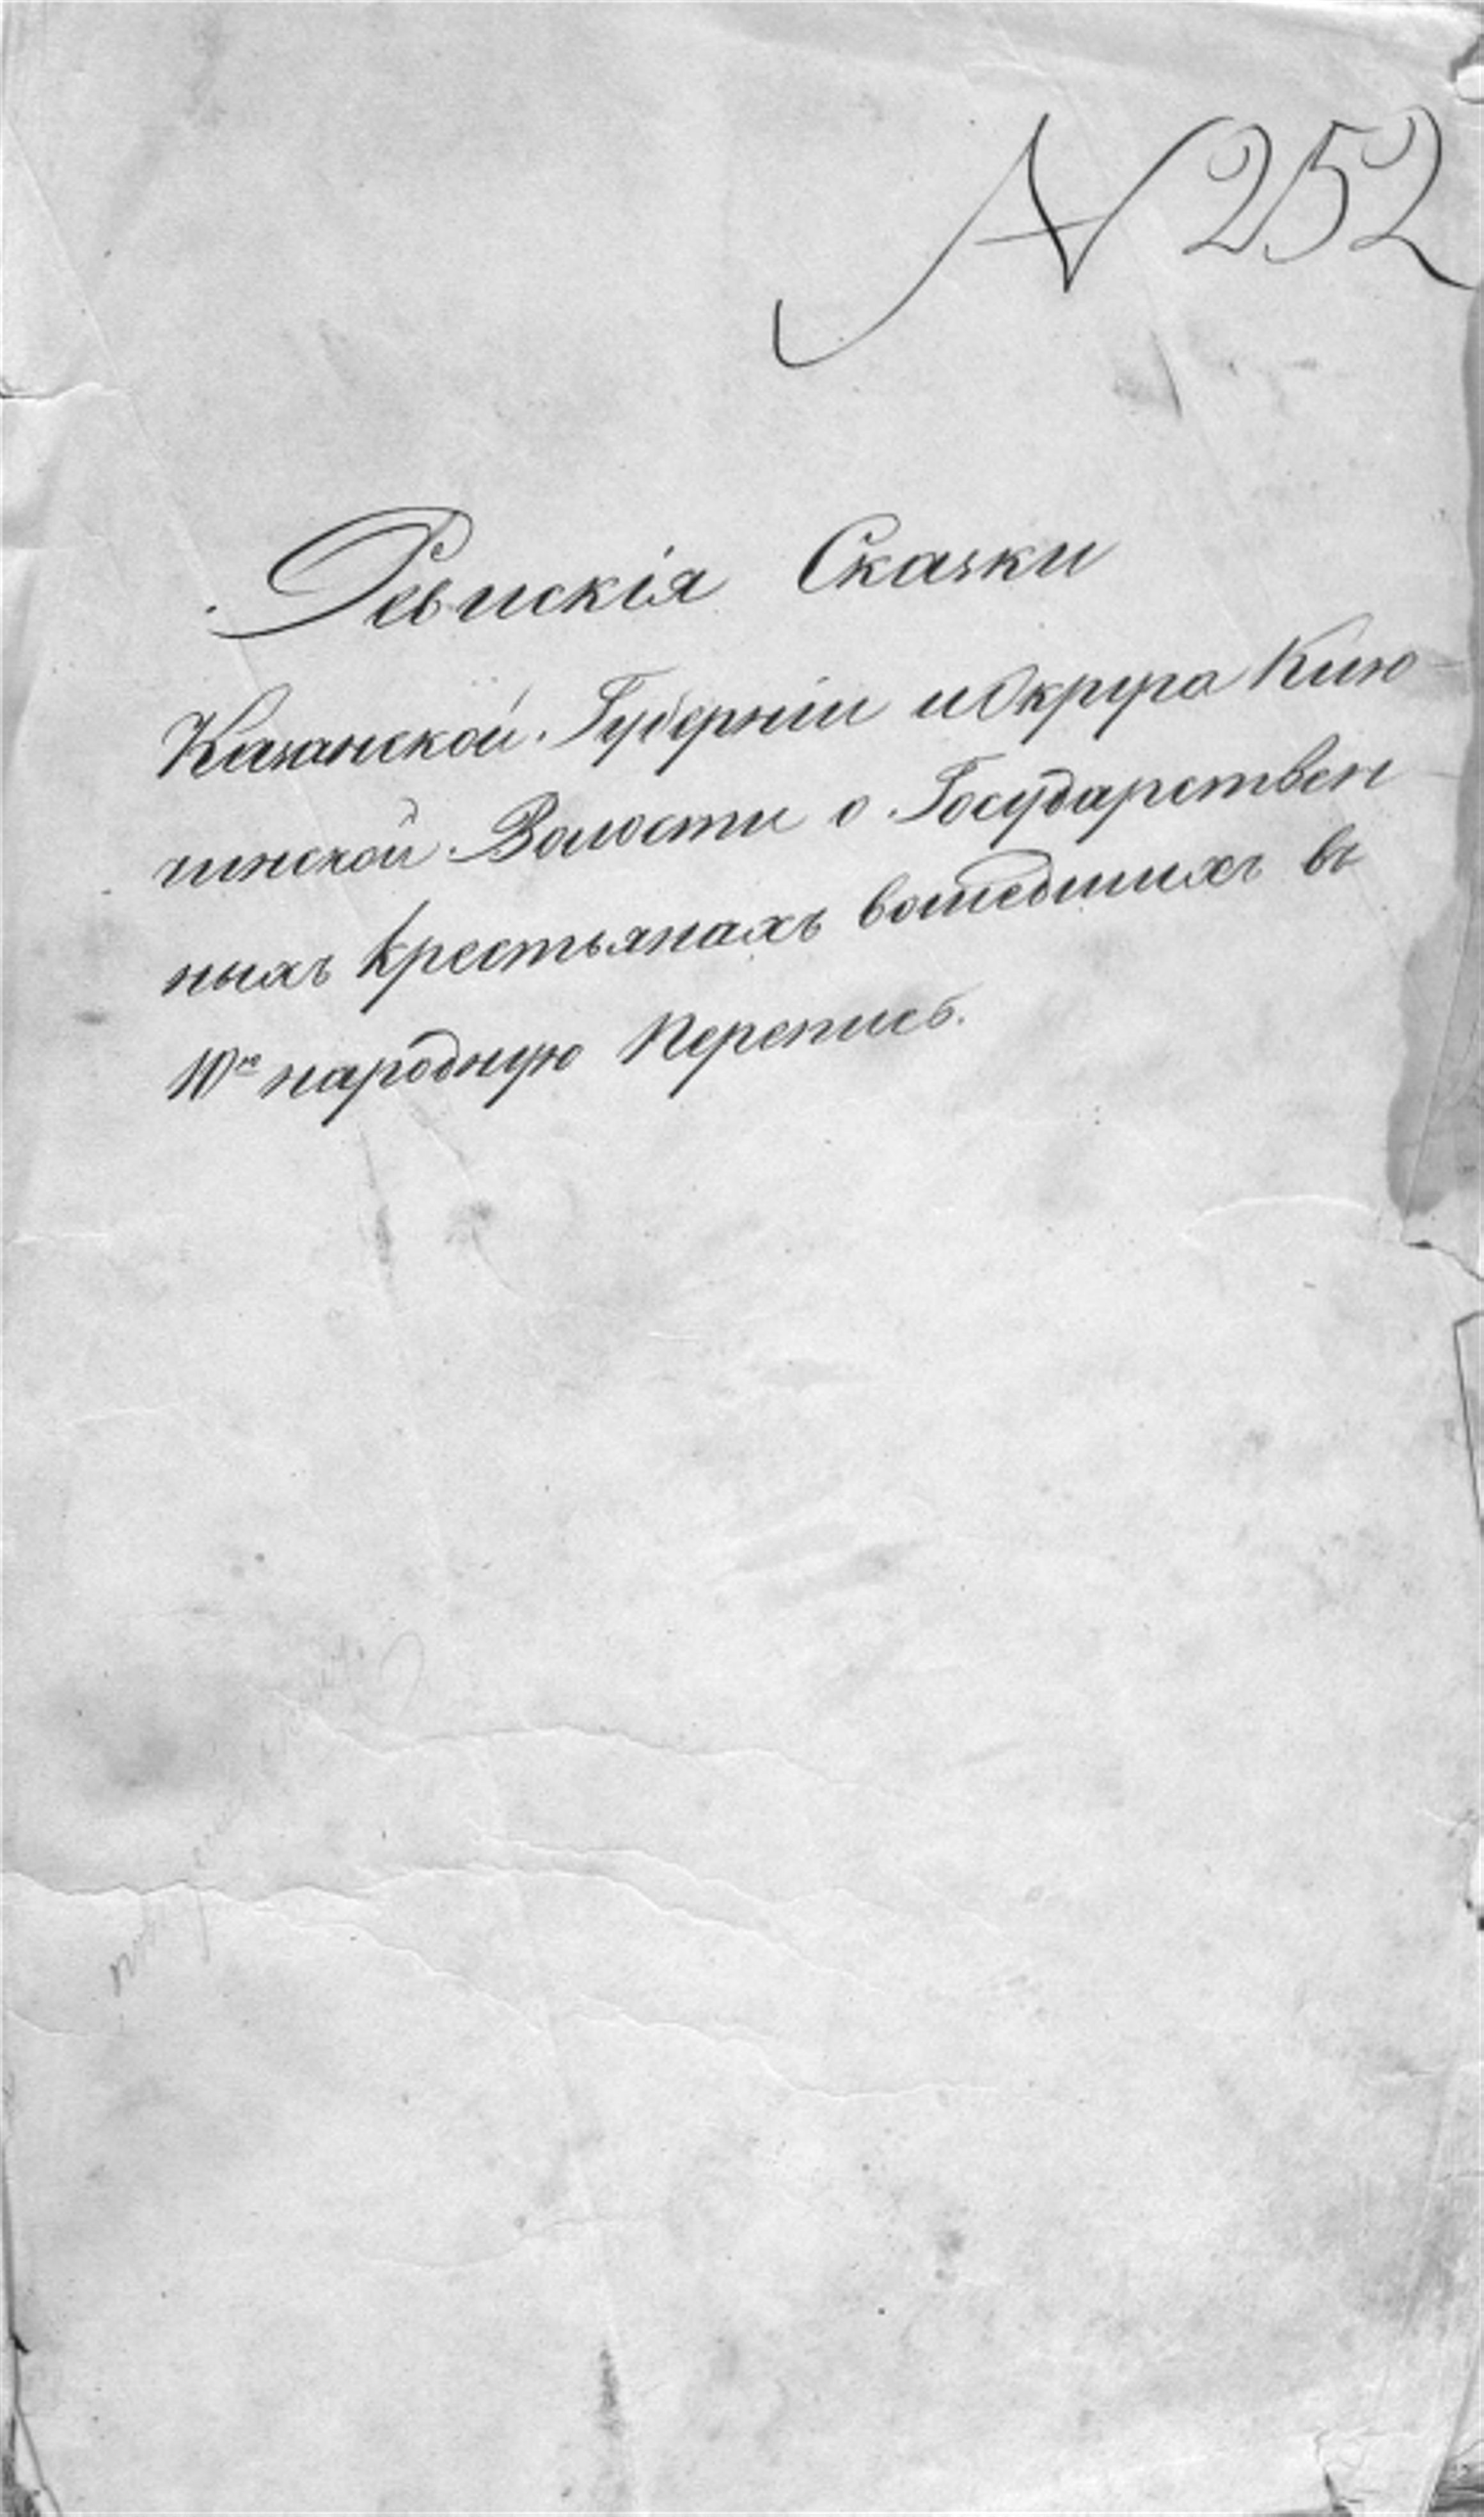 N 252
Ревискія Сказки
Казанской Губерніи и Округа Кию-
чинской Волости о Государствен
ныхъ крестьянахъ вошедшихъ въ
10ю народную перепись.